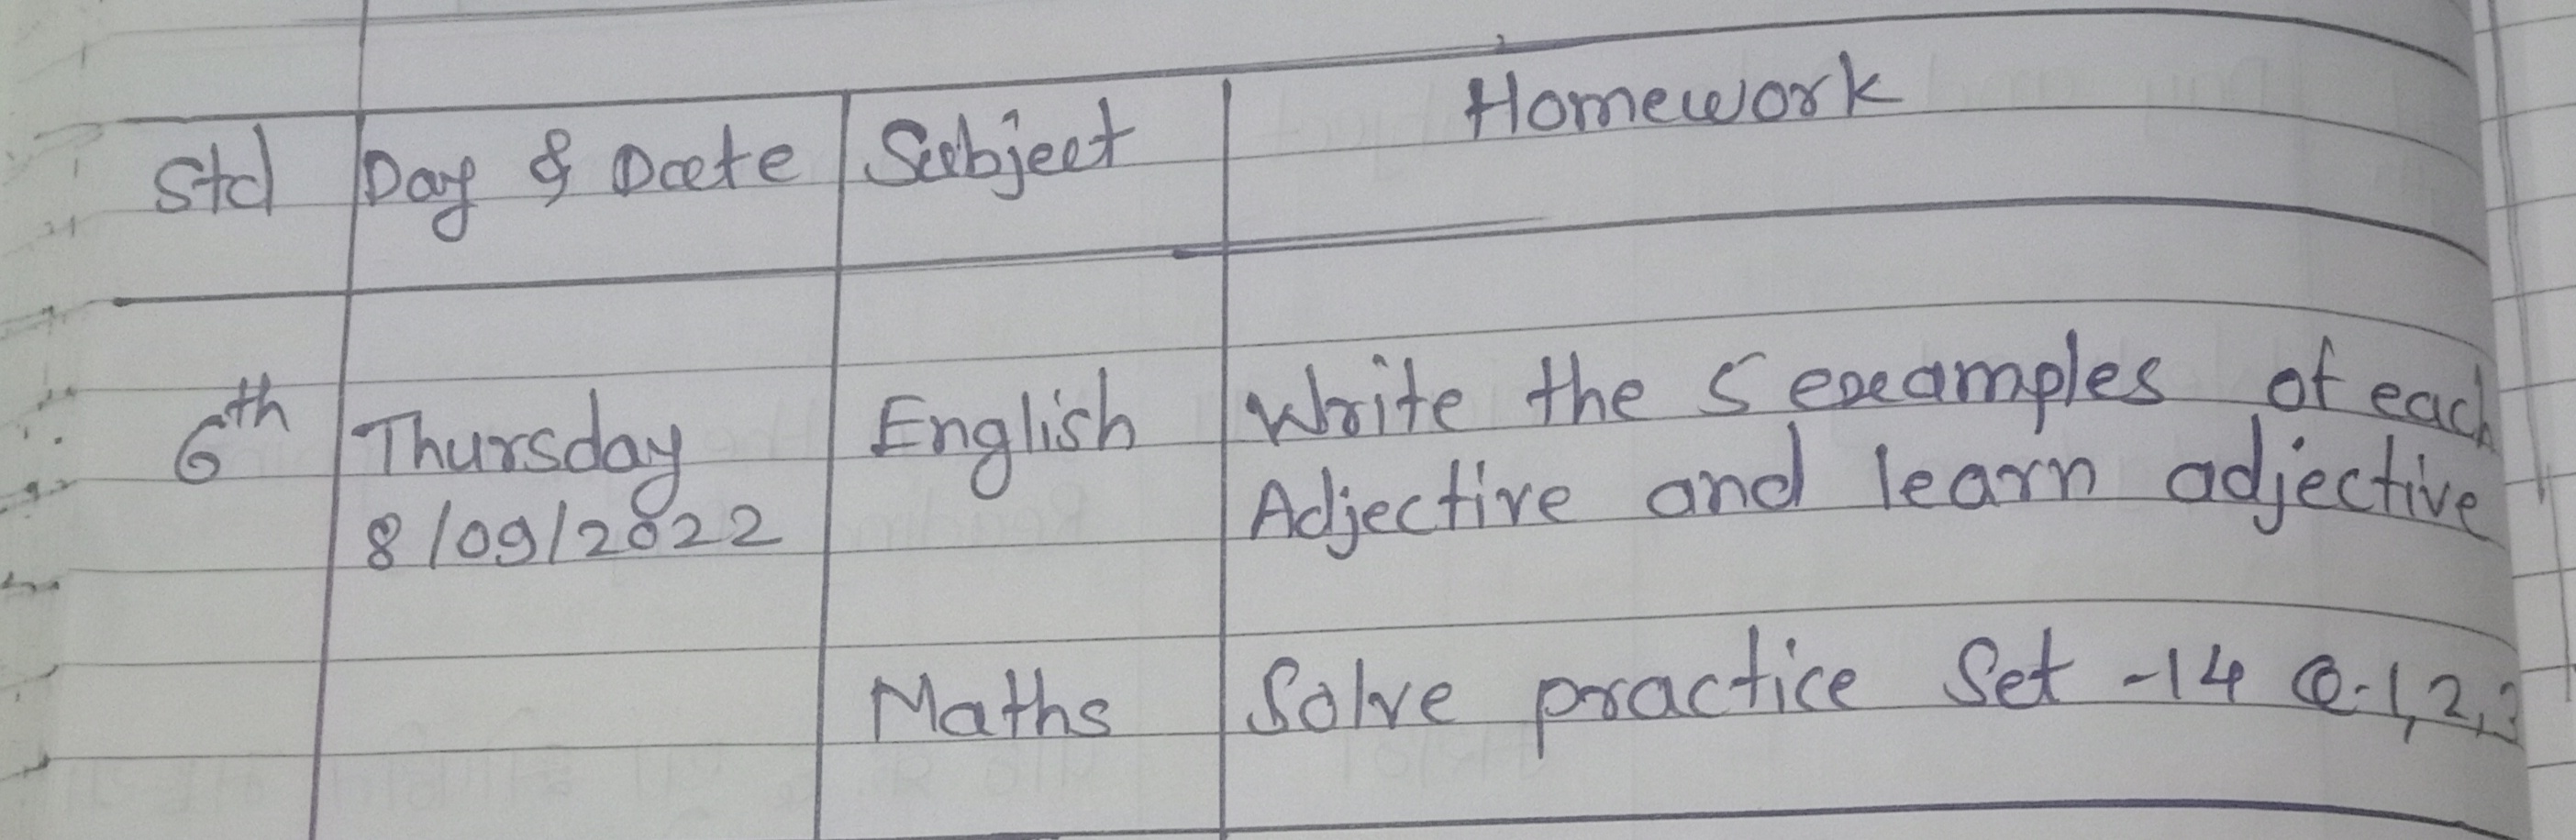 Std Day & Date Subject Homework
6th Thursday English Write the 5 examples of each
8/09/2022 Adjective and learn adjective
Maths Solve practice Set -14 Q.1,2,3